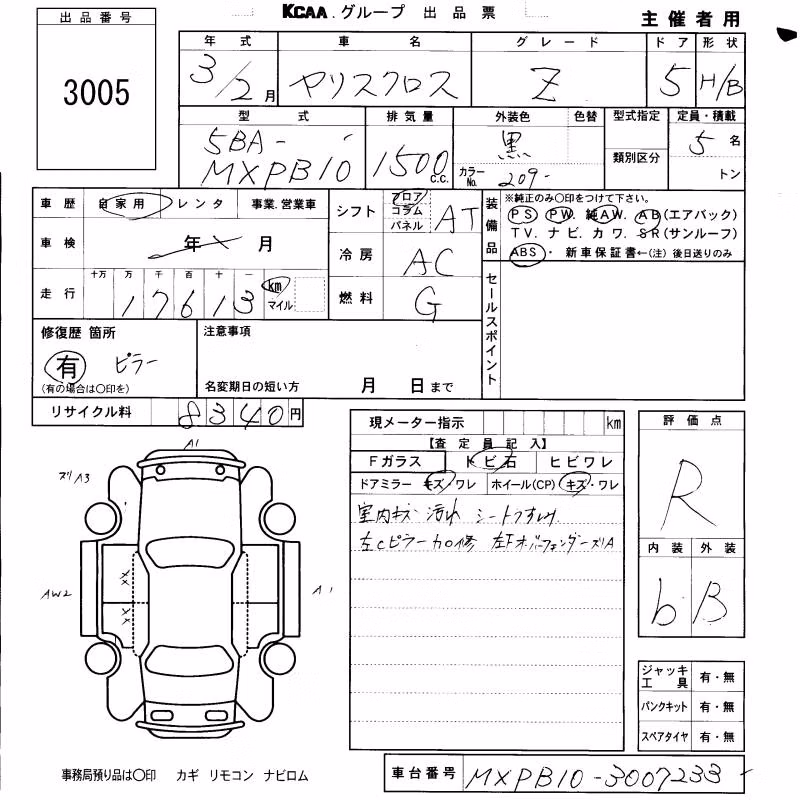 出品番号
KCAA.グループ 出品票
主催者用
3005
年式 車名 グレード ドア 形状
3/2月 ヤリスクロス Z 5 H/B
型式 排気量 外装色 色替 型式指定 定員・積載
5BA-
MXPB10 1500 c.c. 黒 カラーNo. 209 類別区分 5名
トン
車歴 自家用 レンタ 事業.営業車
シフト フロア コラム パネル AT
装備品 ※純正のみ〇印をつけて下さい。
PS PW. 純AW. AB(エアバック)
TV. ナビ. カワ. SR(サンルーフ)
ABS・ 新車保証書←(注) 後日送りのみ
車検 年 月
冷房 AC
走行 十万 万 千 百 十 一
17613 km マイル
燃料 G
セールスポイント
修復歴 箇所 注意事項
有 ピラー
(有の場合は〇印を) 名変期日の短い方 月 日まで
リサイクル料 8340円
現メーター指示 km
評価点
【査定員記入】
Fガラス トビ石 ヒビワレ
ドアミラー キズ ワレ ホイール(CP) キズ・ワレ
R
室内キズ 汚れ シートスレ
左Cピラー加修 左F オーバーフェンダーズリA
内装 外装
b B
A1
ズリA3
AW2
XX
XX
A1
ジャッキ工具 有・無
パンクキット 有・無
スペアタイヤ 有・無
事務局預り品は〇印 カギ リモコン ナビロム
車台番号 MXPB10-3007233